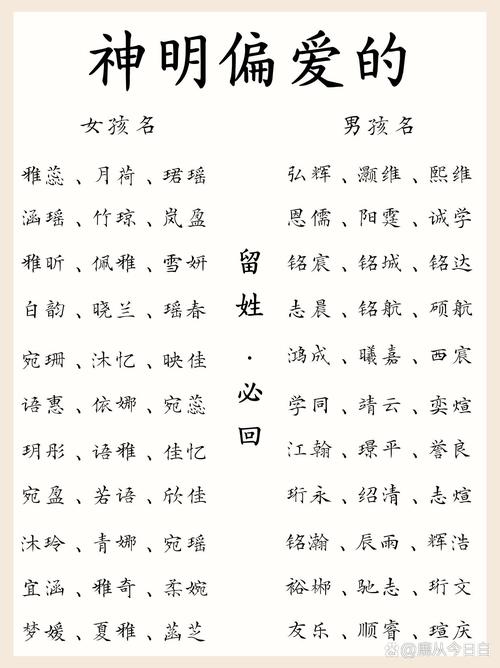 神明偏爱的
女孩名
雅蕊、月荷、珺瑶
涵瑶、竹琼、岚盈
雅昕、佩雅、雪妍
白韵、晓兰、瑶春
宛珊、沐忆、映佳
语惠、依娜、宛蕊
玥彤、语雅、佳忆
宛盈、若语、欣佳
沐玲、青娜、宛瑶
宜涵、雅奇、柔婉
梦媛、夏雅、菡芝
留姓·必回
男孩名
弘辉、灏维、熙维
恩儒、阳霆、诚学
铭宸、铭城、铭达
志晨、铭航、硕航
鸿成、曦嘉、西宸
学同、靖云、奕煊
江翰、璟平、誉良
珩永、绍清、志煊
铭瀚、辰雨、辉浩
裕郴、驰志、珩文
友乐、顺睿、瑄庆
@凰从今日白